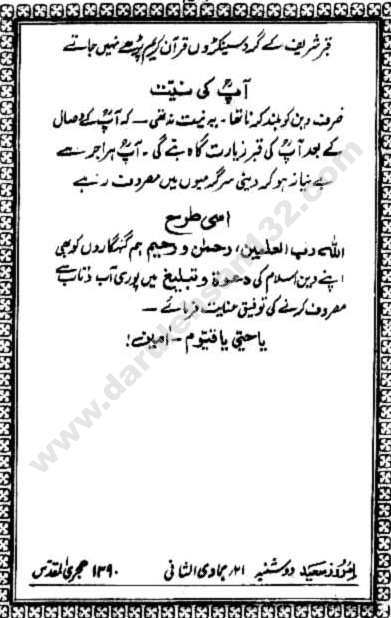 قبر شریف کے گرد سینکڑوں قرآن کریم پڑھے نہیں جاتے
آپؒ کی نیت
صرف دین کو بلند کرنا تھا۔ یہ نیت نہ تھی — کہ آپؒ کے وصال
کے بعد آپؒ کی قبر زیارت گاہ بنے گی۔ آپؒ ہر اجر سے
بے نیاز ہو کر دینی سرگرمیوں میں مصروف رہے
اسی طرح
اللہ رب العلمین، رحمٰن و رحیم ہم گنہگاروں کو بھی
اپنے دین اسلام کی دعوۃ و تبلیغ میں پوری آب و تاب سے
مصروف کرنے کی توفیق عنایت فرمائے —
یا حیّ یا قیّوم – امین!
امروز سعید دو شنبہ ۲۱، جمادی الثانی ۱۳۹۰ ہجری المقدس
www.darulehsan132.com